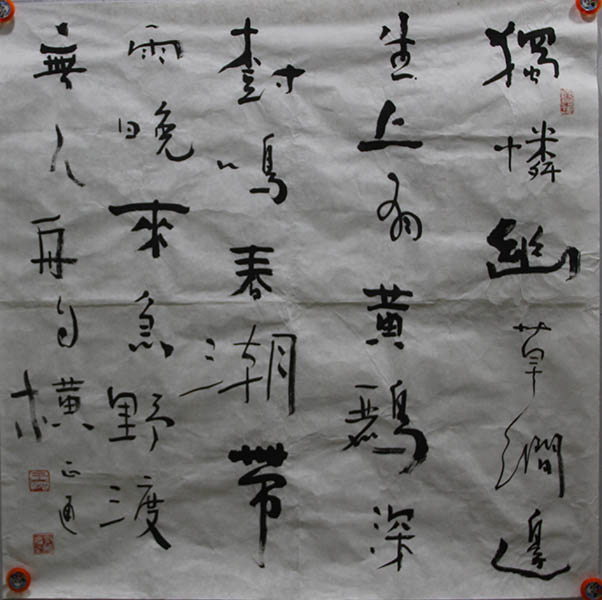 獨憐幽草澗邊
生上有黃鸝深
樹鳴春潮帶
雨晚來急野渡
無人舟自橫
正通